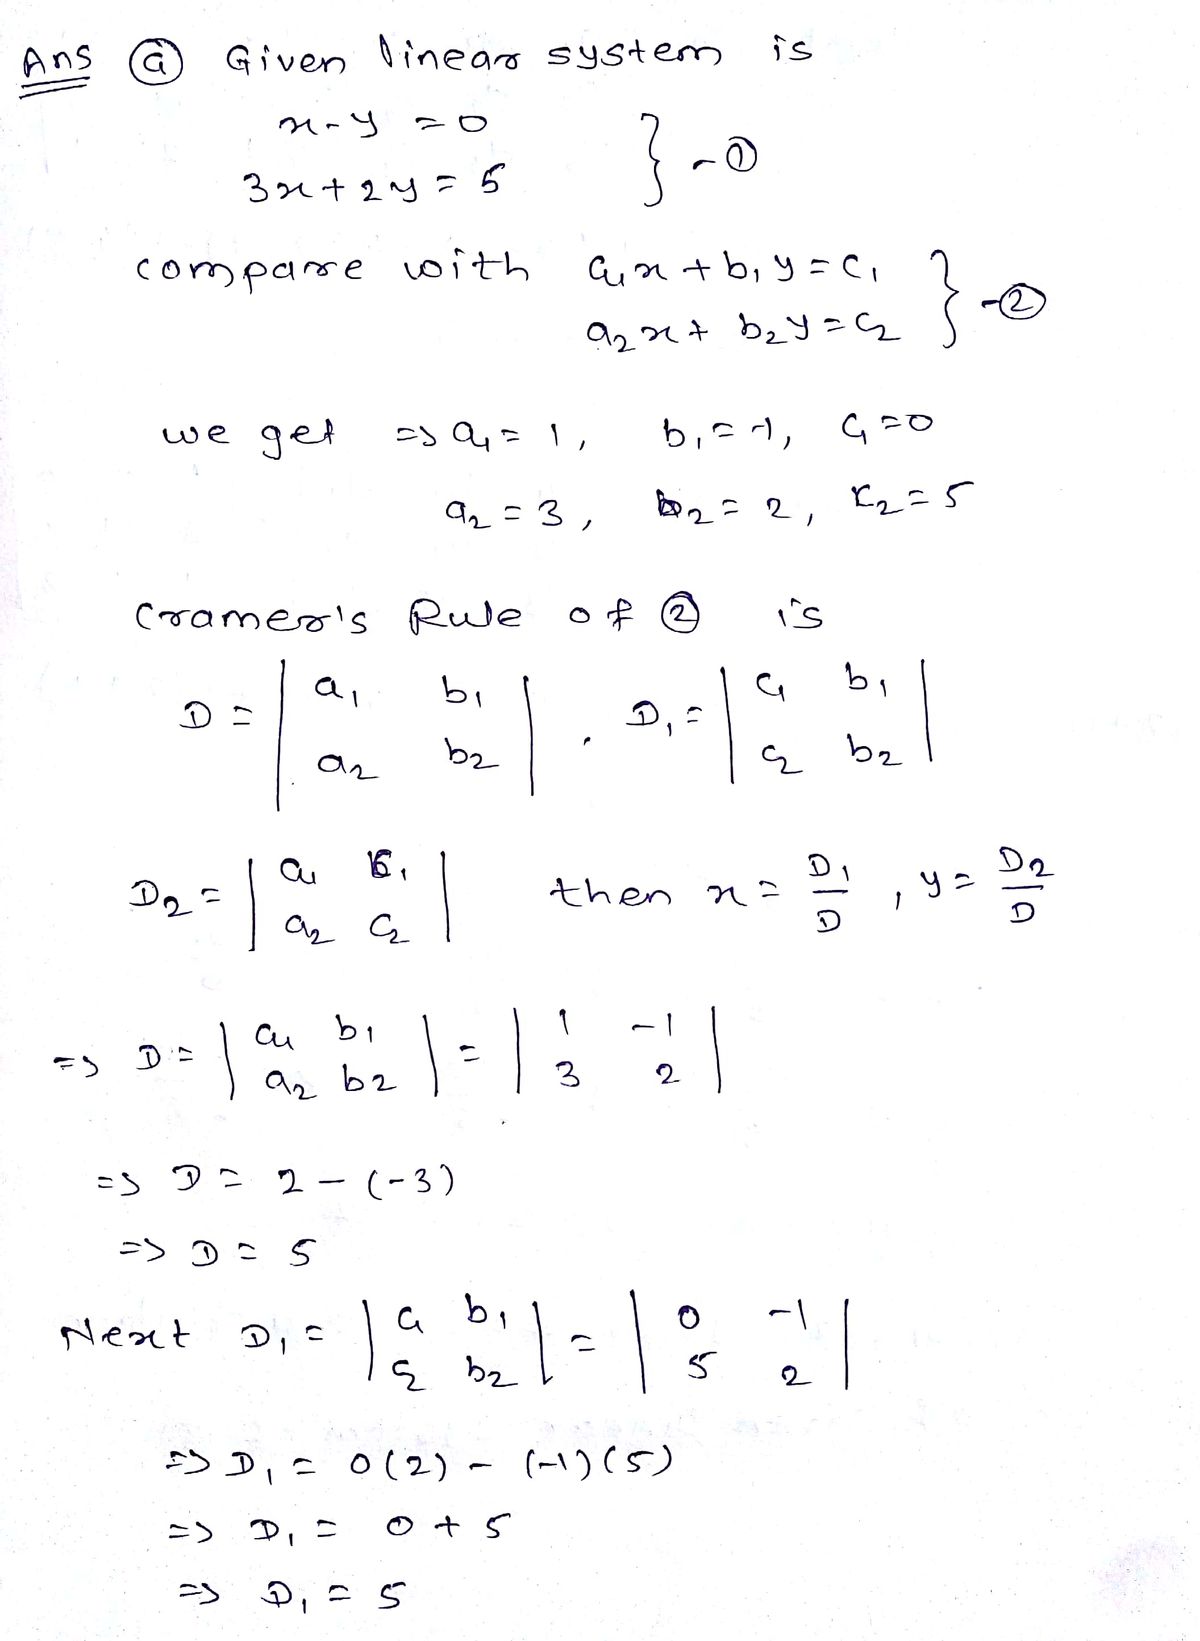 Ans (a) Given linear system is
x-y = 0
3x+2y = 5 } - ①
compare with a₁x + b₁y = c₁
a₂x + b₂y = c₂ } - ②
we get => a₁ = 1, b₁ = -1, c₁ = 0
a₂ = 3, b₂ = 2, c₂ = 5
Cramer's Rule of ② is
D = | a₁ b₁ | , D₁ = | c₁ b₁ |
| a₂ b₂ | | c₂ b₂ |
D₂ = | a₁ c₁ | then x = D₁/D , y = D₂/D
| a₂ c₂ |
=> D = | a₁ b₁ | = | 1 -1 |
| a₂ b₂ | | 3 2 |
=> D = 2 - (-3)
=> D = 5
Next D₁ = | c₁ b₁ | = | 0 -1 |
| c₂ b₂ | | 5 2 |
=> D₁ = 0(2) - (-1)(5)
=> D₁ = 0 + 5
=> D₁ = 5